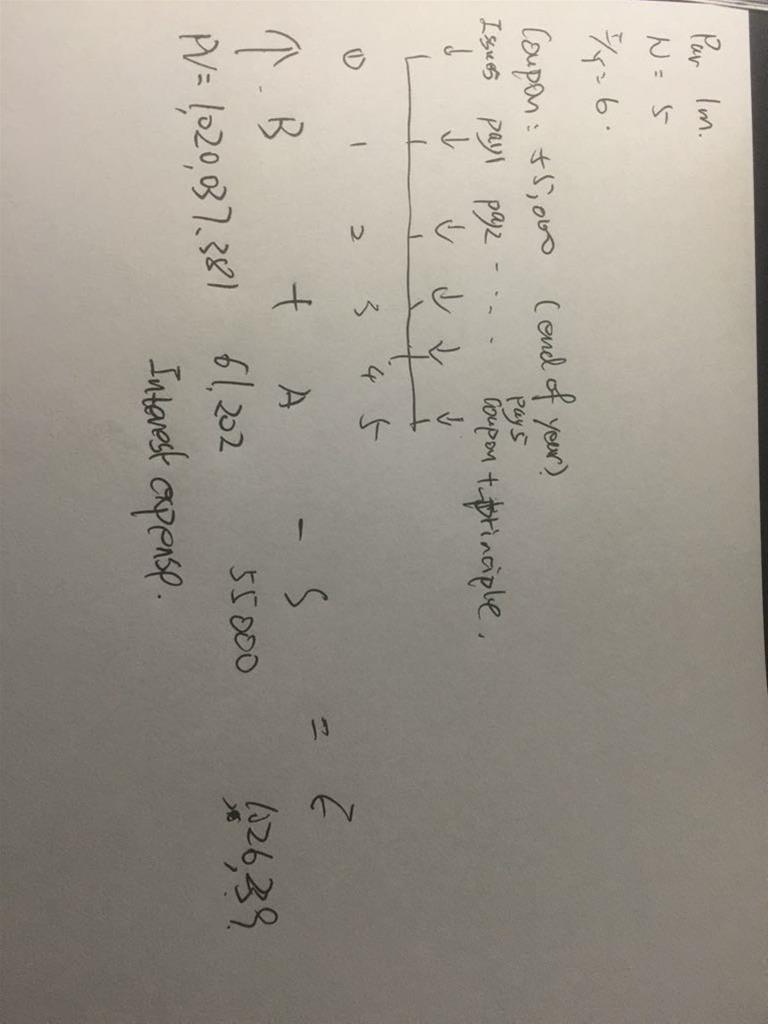 Par 1m.
N = 5
I/Y = 6.
Coupon: 55,000 (end of year)
Issues pay1 pay2 - . . . pay5
coupon + principle.
0 1 2 3 4 5
↑ B + A - S = E
PV = 1,020,037.381 61,202 55000 1,026,239.
Interest expense.